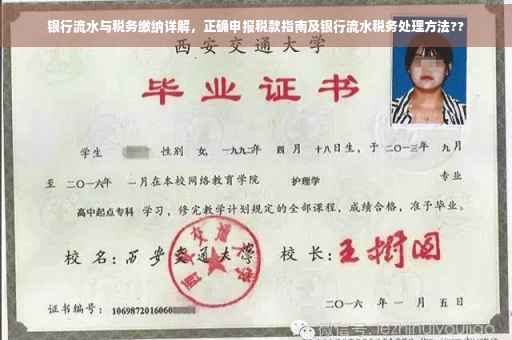 银行流水与税务缴纳详解，正确申报税款指南及银行流水税务处理方法??
西安交通大学
毕业证书
学生 性别 女，一九九二年 四月 十八日生，于二〇一三年 九月
至 二〇一六年 一月在本校网络教育学院 护理学 专业
高中起点专科 学习，修完教学计划规定的全部课程，成绩合格，准予毕业。
校名：西安交通大学 校长：王树国
西安交通大学
证书编号：1069872016060
二〇一六年 一月 五日
微信号: jiezhinuiyoujiao